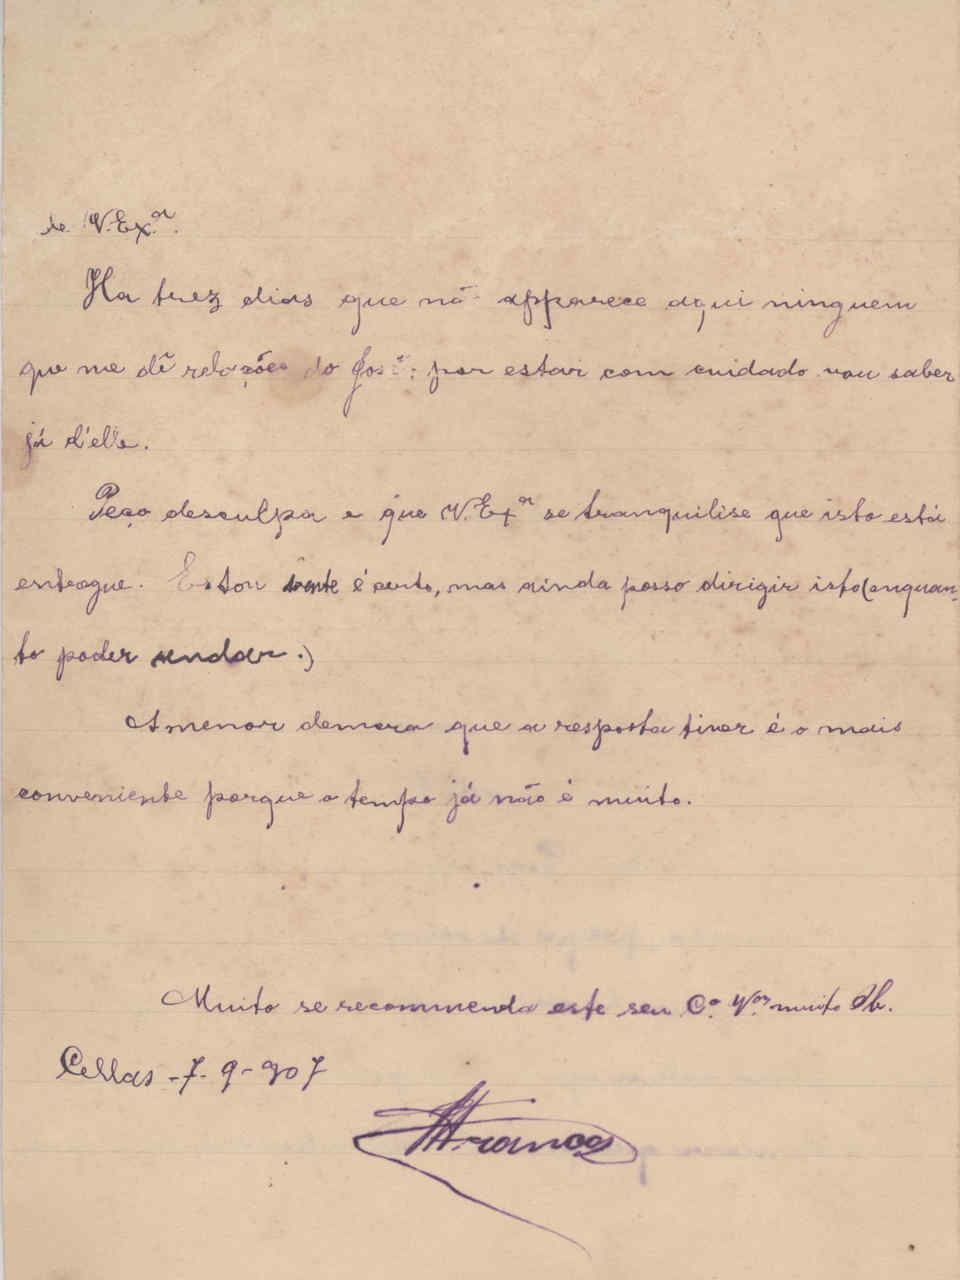 de V. Ex.ª.
Ha trez dias que não apparece aqui ninguem
que me dê relações do José: por estar com cuidado vou saber
já d'elle.
Peço desculpa e que V. Exª se tranquilise que isto está
entregue. Estou doente é certo, mas ainda posso dirigir isto (enquan-
to poder andar.)
A menor demora que a resposta tiver é o mais
conveniente porque o tempo já não é muito.
Muito se recommenda este seu C.º V.ºr muito Ob.
Cellas - 7 - 9 - 907
Franco